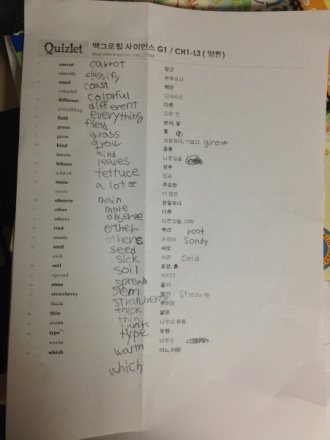 Quizlet 맥그로힐 사이언스 G1 / CH1-L3 ( 엄찬)
carrot carrot 당근
classify classify 분류하다
coast coast 해안
colorful colorful
different different 다른
everything everything 모든 것
field field
grass grass 풀
grow grow grow
kind kind 종류
leaves leaves 나뭇잎들
lettuce lettuce 상추
a lot of a lot of 많은
main main 주요한
more more 더 많은
observe observe 관찰하다
other other 다른
others others
root 뿌리 root
sandy Sandy
seed seed 씨앗
sick sick 아픈 Cold
soil soil 토양, 흙
spread spreads
stem stem 줄기
strawberry strawberry 딸기
thick thick 두꺼운
thin thin 얇은
trunk trunk
type type 유형
warm warm 따뜻한
which which 어느, 어떤